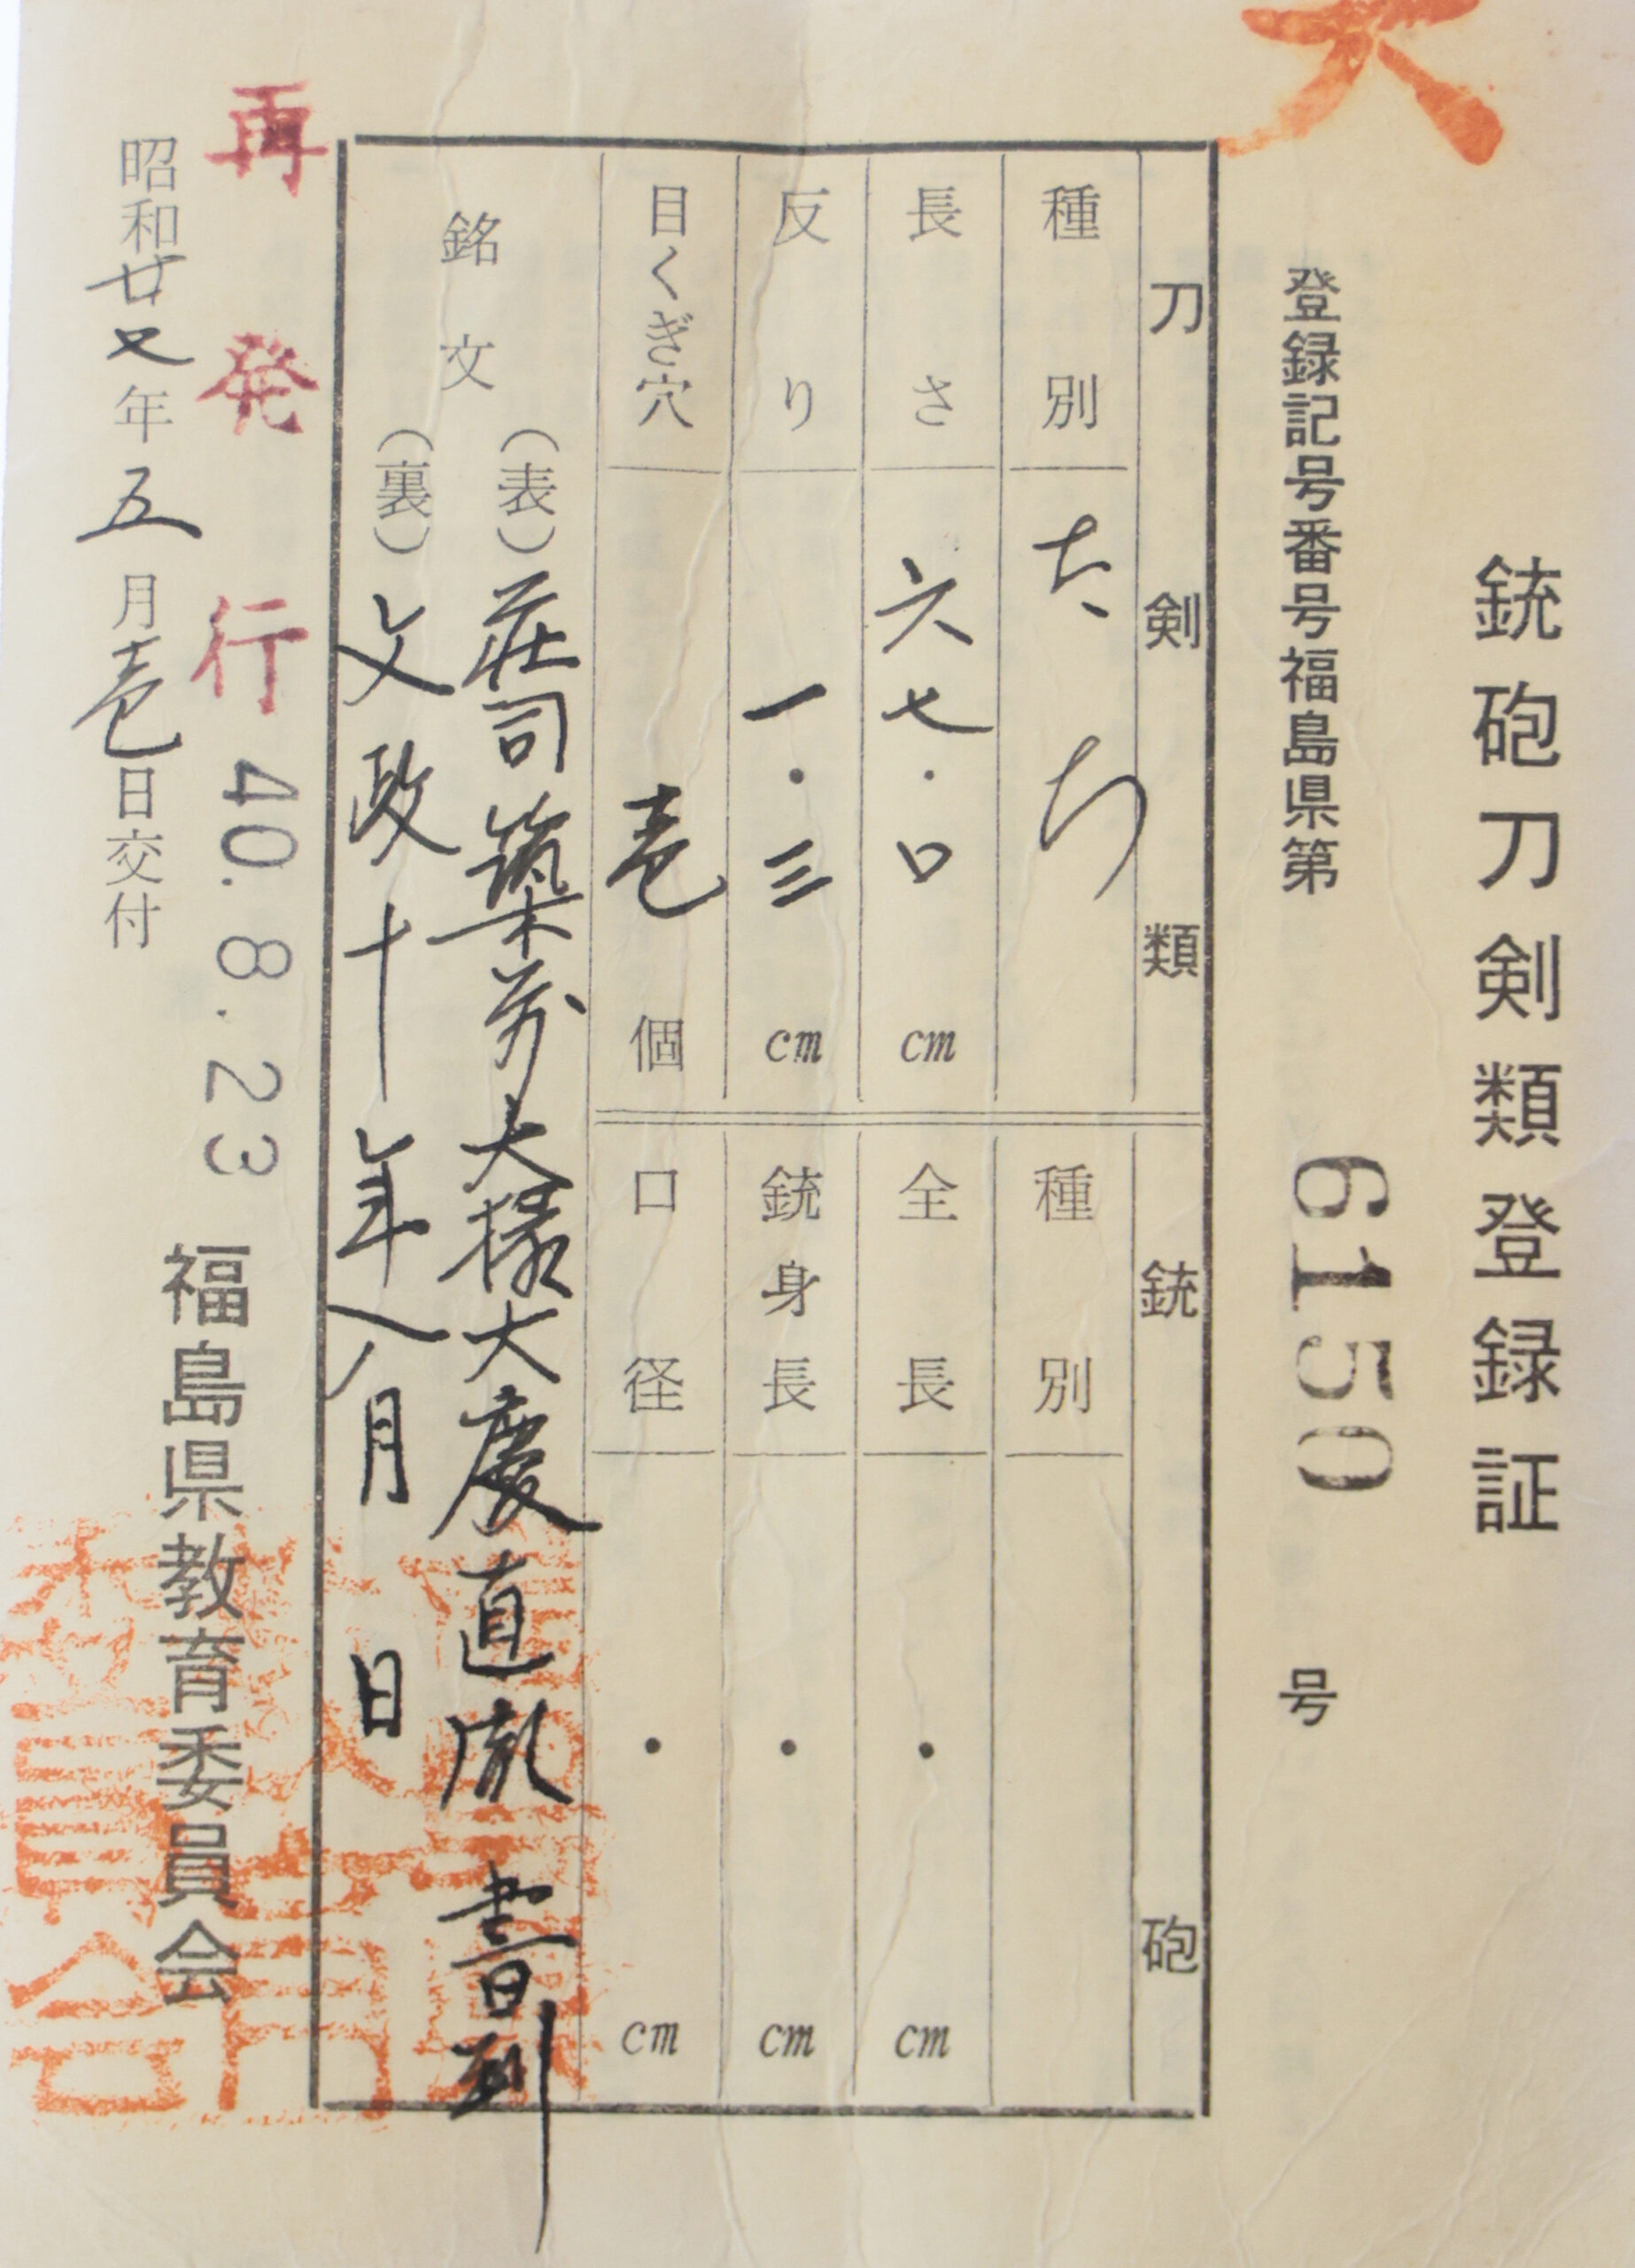 銃砲刀剣類登録証
登録記号番号福島県第 6150 号
刀剣類
種別 たち
長さ 六七.〇 cm
反り 一.三 cm
目くぎ穴 壱 個
銃砲
種別
全長 . cm
銃身長 . cm
口径 . cm
銘文
(表) 荘司筑前大掾大慶直胤
(裏) 文政十年八月 日
再発行 40.8.23
昭和廿 年五月壱日交付
福島県教育委員会